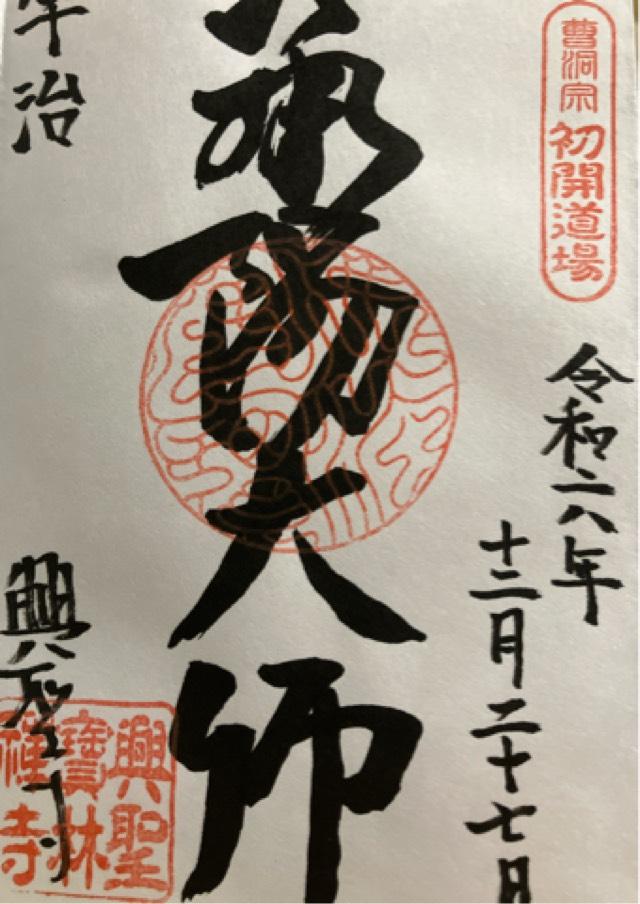 曹洞宗 初開道場
令和六年
十二月二十七日
承陽大師
宇治
興聖寺
興聖
寶林
禪寺